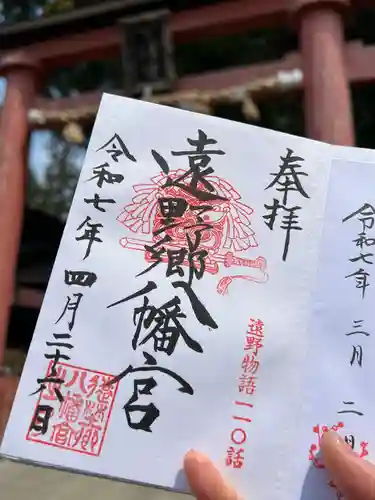 奉拝
遠野郷八幡宮
遠野物語
一一〇話
令和七年四月二十六日
令和七年三月二